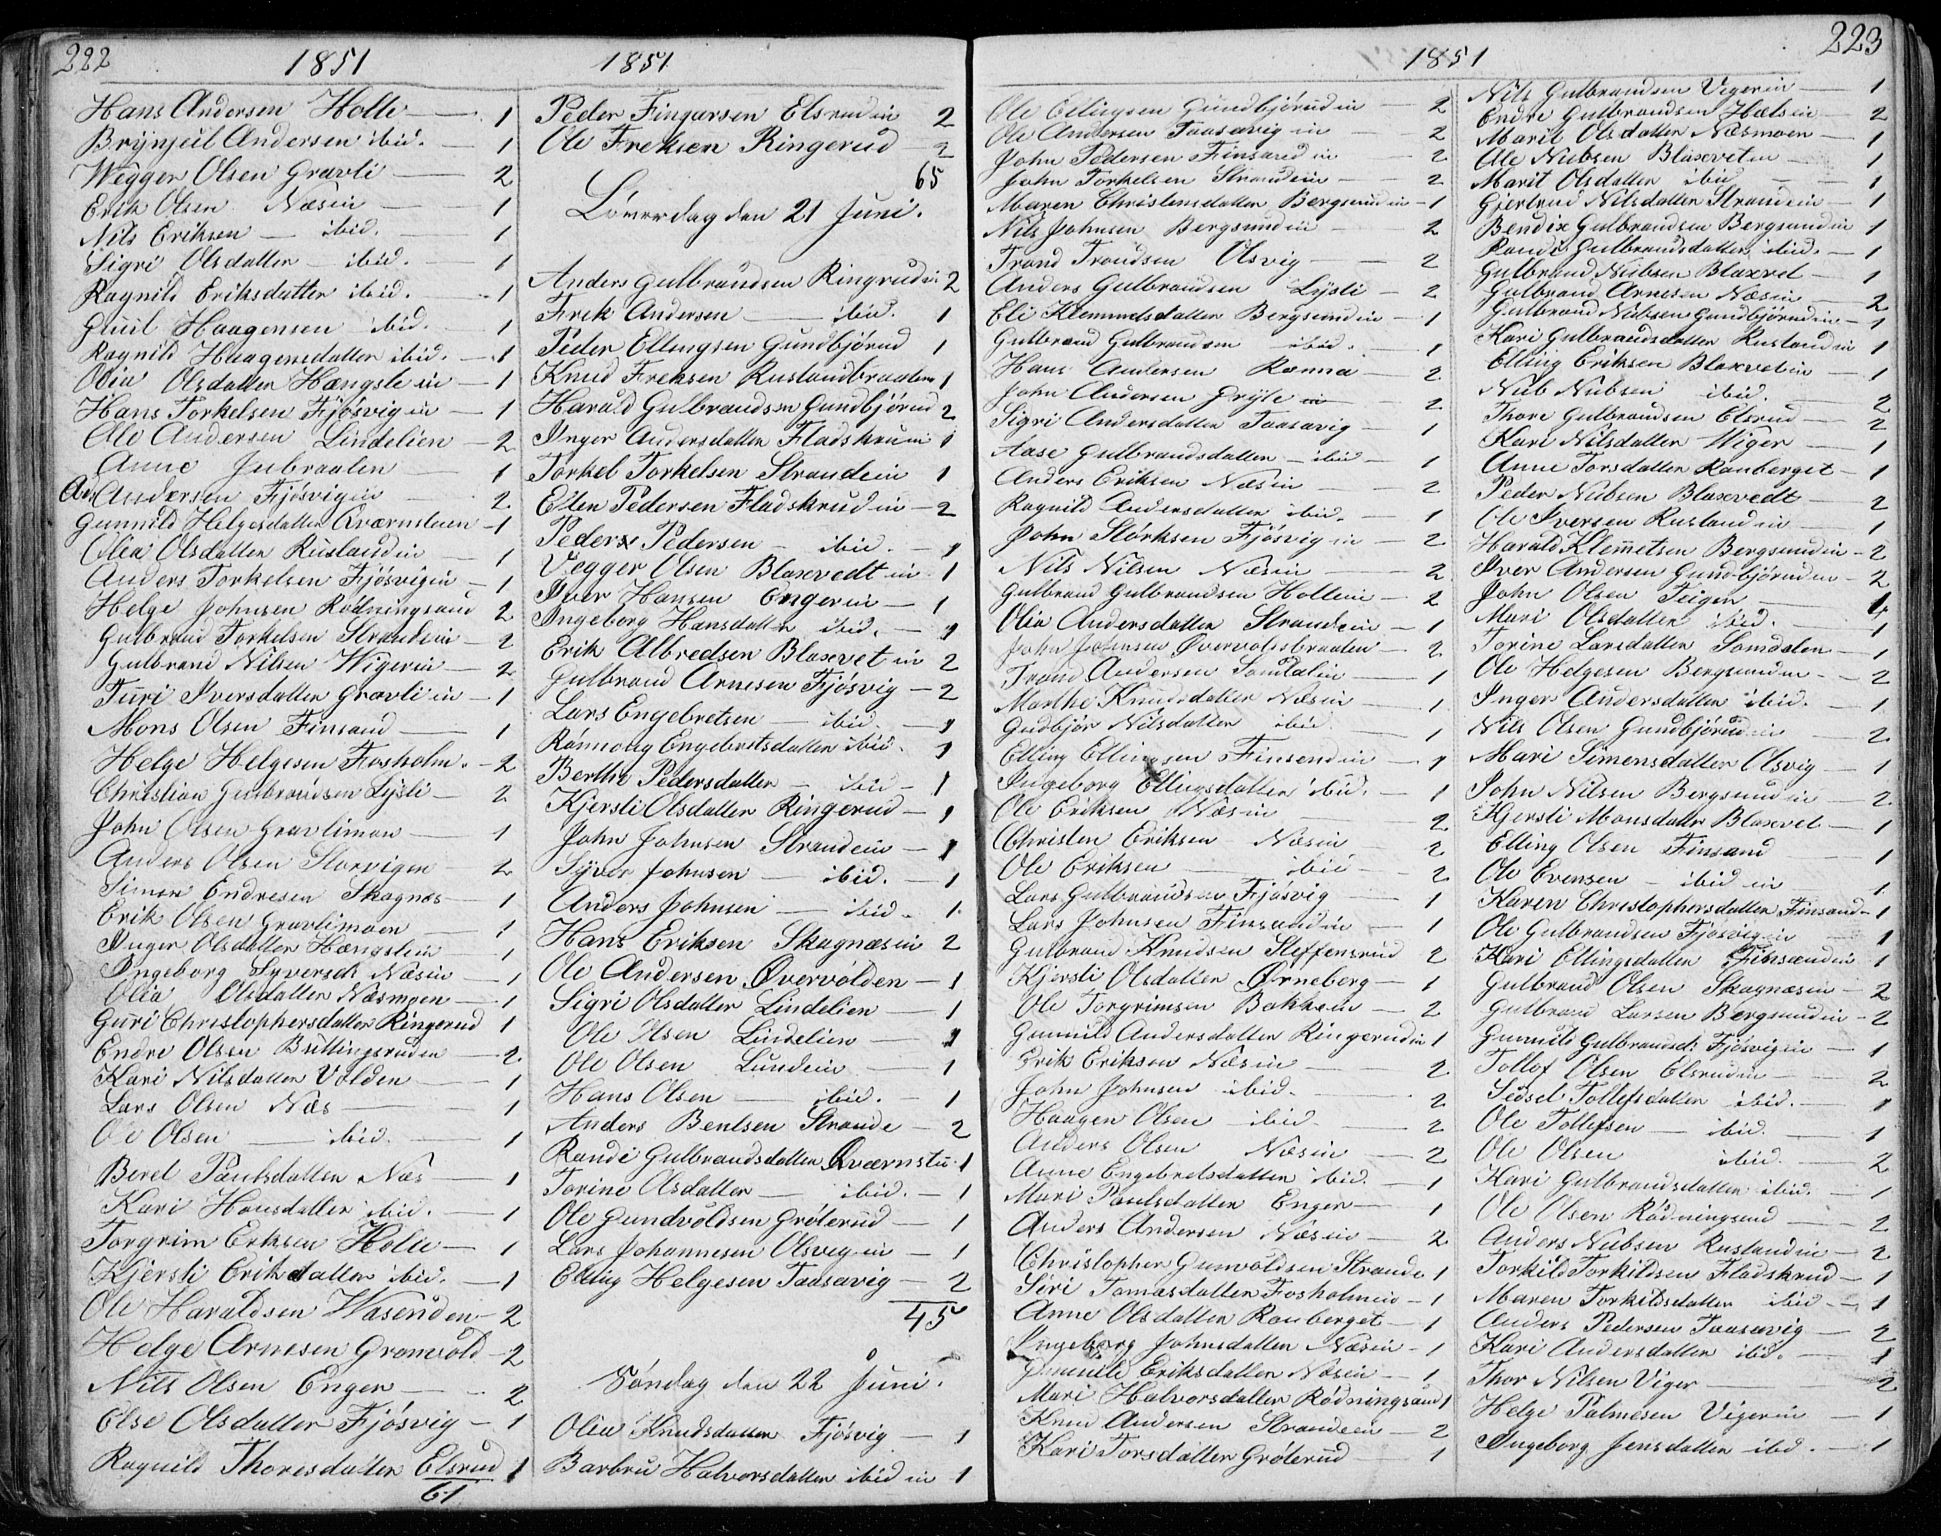 222
1851
Hans Andersen Holte — 1
Brynjeil Andersen ibid. — 1
Wegger Olsen Gravli — 2
Erik Olsen Næsin — 1
Nils Eriksen — ibid. — 1
Sigri Olsdatter — ibid. — 1
Ragnild Eriksdatter ibid. — 1
Haagensen ibid. 1
Ragnild Haagensdatter ibid. — 1
Olia Olsdatter Hængsle in — 1
Hans Torkelsen Fjøsvig in — 1
Ole Andersen Lindelien — 2
Anne Jubraaten — 1
And Andersen Fjøsvigin — 2
Gunnild Helgesdatter Qværnsteien — 1
Olia Olsdatter Ruslandin — 1
Anders Torkelsen Fjøsvigin — 1
Helge Johnsen Rødningsand 2
Gulbrand Torkelsen Strandein — 2
Gulbrand Nilsen Wigerin — 2
Turi Iversdatter Gravli in — 1
Mons Olsen Finsand — 1
Helge Helgesen Fosholm. — 2
Christian Gulbrandsen Lysli — 2
John Olsen Gravlimon — 1
Anders Olsen Storvigen 2
Simon Endresen Skagnæs — 1
Erik Olsen Gravlimoen — 1
Inger Olsdatter Hængslein 1
Ingeborg Syversd. Næsin — 1
Olia Olsdatter Næsmoen — 1
Guri Christophersdatter Ringerud 1
Endre Olsen Bullingsruden — 2
Kari Nilsdatter Volden — 1
Lars Olsen Næs — 1
Ole Olsen — ibid. — 1
Beret Paulsdatter Næs — 1
Kari Hansdatter ibid. — 1
Torgrim Eriksen Holte — 1
Kjersti Eriksdatter ibid. — 1
Ole Haraldsen Wasenden — 2
Helge Arnesen Grønvold — 2
Nils Olsen Enger — 2
Else Olsdatter Fjøsvig — 1
Ragnild Thoresdatter Elsrud 1
61
1851
Peder Fingarsen Elsrud in 2
Ole Freksen Ringerud — 2
65
Løverdag den 21 Juni.
Anders Gulbrandsen Ringrud in 2
Frek Andersen — ibid. 1
Peder Ellingsen Gundbjørud 1
Knud Freksen Ruslandbraaten 1
Harald Gulbrandsen Gundbjørud 2
Inger Andersdatter Fladskrud in 1
Torkel Torkelsen Strandein 1
Ellen Pedersen Fladskrud in — 2
Peder Pedersen — ibid. — 1
Vegger Olsen Blaxvedt in 1
Iver Hansen Engerin — 1
Ingeborg Hansdatter ibid. — 1
Erik Albredsen Blaxvet in 2
Gulbrand Arnesen Fjøsvig — 2
Lars Engebretsen — ibid. — 1
Rønnoug Engebretsdatter ibid. 1
Berthe Pedersdatter — ibid — 1
Kjersti Olsdatter Ringerud — 1
John Johnsen Strandein — 1
Syver Johnsen — ibid. — 1
Anders Johnsen — ibid. 1
Hans Eriksen Skagnæsin 2
Ole Andersen Øvervolden — 1
Sigri Olsdatter Lindelien — 1
Ole Olsen Lindelien — 1
Ole Olsen Lundein — 1
Hans Olsen — ibid. — 1
Anders Bentsen Strande — 2
Randi Gulbrandsdatter Qværnstu. 1
Torine Olsdatter — ibid. — 1
Ole Gundvoldsen Grøterud — 1
Lars Johannesen Olsvigin — 1
Elling Helgesen Taasavig — 2
45
Søndag den 22 Juni.
Olia Knudsdatter Fjøsvig — 1
Barbru Halvorsdatter ibid in — 1
223
1851
Ole Ellingsen Gundbjørud in — 2
Ole Andersen Taasavig in — 2
John Pedersen Finsand in — 2
John Torkelsen Strandein — 2
Maren Christensdatter Bergsund in — 1
Nils Johnsen Bergsund in — 2
Trond Trondsen Olsvig — 2
Anders Gulbrandsen Lysli — 2
Eli Klemmetsdatter Bergsund in — 1
Gulbrand Gulbrandsen ibid. — 1
Hans Andersen Ramna — 2
John Andersen Gryte in — 2
Sigri Andersdatter Taasavig — 1
Aase Gulbrandsdatter — ibid — 1
Anders Eriksen Næsin — 2
Ragnild Andersdatter ibid. — 1
John Størksen Fjøsvig in — 2
Nils Nilsen Næsin — 2
Gulbrand Gulbrandsen Hollein — 2
Olia Andersdatter Strandein — 1
John Johnsen Øvervolsbraaten — 2
Trond Andersen Somdalin — 1
Marthe Knudsdatter Næsin — 1
Gudbjør Nilsdatter ibid — 1
Elling Ellingsen Finsendin — 1
Ingeborg Ellingsdatter ibid. — 1
Ole Eriksen Næsin — 2
Christen Eriksen Næsin 2
Ole Eriksen — ibid — 2
Lars Gulbrandsen Fjøsvig — 1
Lars Johnsen Finsand in — 1
Gulbrand Knudsen Steffensrud 2
Kjersti Olsdatter Ørneberg — 1
Ole Torgrimsen Bakken — 2
Gunnild Andersdatter Ringerud in 1
Erik Eriksen Næsin — 2
John Johnsen ibid. — 2
Haagen Olsen ibid. — 2
Anders Olsen Næsin — 2
Anne Engebretsdatter ibid. — 1
Mari Paulsdatter Enger — 1
Anders Andersen Næsin — 2
Christopher Gunvoldsen Strande 1
Siri Tomasdatter Fosholmin — 1
Anne Olsdatter Rauberget — 1
Ingeborg Johnsdatter Næsin — 1
Gunild Eriksdatter Næsin — 1
Mari Halvorsdatter Rødningsand 1
Knud Andersen Strandein — 2
Kari Torsdatter Grøterud — 1
Nils Gulbrandsen Vigerin — 1
Endre Gulbrandsen Hælsin — 2
Marit Olsdatter Næsmoen — 1
Ole Nielsen Blaxvet in — 1
Marit Olsdatter ibid — 1
Gjertrud Nilsdatter Strandein — 1
Bendix Gulbrandsen Bergsund in 1
Randi Gulbrandsdatter ibid. — 1
Gulbrand Nielsen Blaxvet — 1
Gulbrand Arnesen Næsin — 2
Gulbrand Nielsen Gundbjørud in — 1
Kari Gulbrandsdatter Rusland in 1
Elling Eriksen Blaxvetin — 1
Niels Nielsen ibid. — 2
Thore Gulbrandsen Elsrud — 2
Kari Nilsdatter Wiger — 1
Anne Torsdatter Rauberget — 1
Peder Nielsen Blaxvedt — 2
Ole Iversen Rusland in — 1
Harald Klemmetsen Bergsund in — 2
Iver Andersen Gundbjørud in — 2
John Olsen Teigen — 1
Mari Olsdatter ibid. — 1
Torine Larsdatter Somdalen — 1
Ole Helgesen Bergsund in — 2
Inger Andersdatter ibid. — 1
Nils Olsen Gundbjørud in — 2
Mari Simensdatter Olsvig — 1
John Nilsen Bergsund in — 2
Kjersti Monsdatter Blaxvet — 1
Elling Olsen Finsand 1
Ole Evensen — ibid in — 1
Karen Christophersdatter Finsand — 1
Ole Gulbrandsen Fjøsvigin — 1
Kari Ellingsdatter Finsandin 1
Gulbrand Olsen Skagnæsin — 2
Gulbrand Larsen Bergsund in — 2
Gunnild Gulbrandsd. Fjøsvigin — 1
Tollof Olsen Elsrudin — 2
Sidsel Tollefsdatter ibid. — 1
Ole Tollefsen — ibid. — 1
Ole Olsen ibid. — 2
Kari Gulbrandsdatter ibid. — 1
Ole Olsen Rødningsand — 2
Anders Nielsen Rusland in — 2
Torkild Torkildsen Fladskrud — 1
Maren Torkildsdatter ibid — 1
Anders Pedersen Taasavig — 2
Kari Andersdatter ibid. — 1
Thor Nilsen Viger — 2
Helge Palmesen Vigerin — 1
Ingeborg Jensdatter ibid. — 1